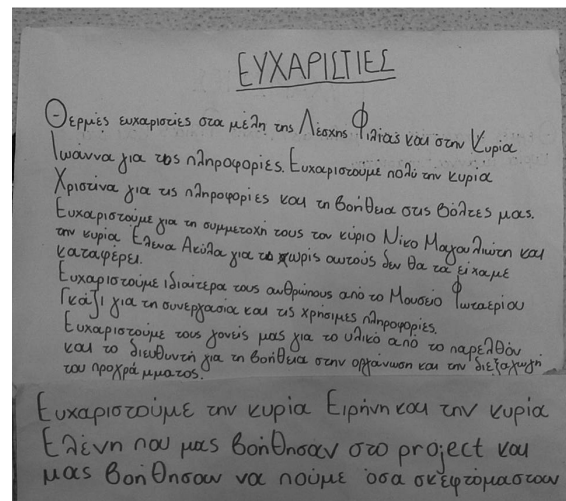 ΕΥΧΑΡΙΣΤΙΕΣ
Θερμές ευχαριστίες στα μέλη της Λέσχης Φιλίας και στην Κυρία
Ιωάννα για τις πληροφορίες. Ευχαριστούμε πολύ την κυρία
Χριστίνα για τις πληροφορίες και τη βοήθεια στις βόλτες μας.
Ευχαριστούμε για τη συμμετοχή τους τον κύριο Νίκο Μαγουλιώτη και
την κυρία Έλενα Ακύλα για χωρίς αυτούς δεν θα τα είχαμε
καταφέρει.
Ευχαριστούμε ιδιαίτερα τους ανθρώπους από το Μουσείο Φωταερίου
Γκάζι για τη συνεργασία και τις χρήσιμες πληροφορίες.
Ευχαριστούμε τους γονείς μας για το υλικό από το παρελθόν
και το διευθυντή για τη βοήθεια στην οργάνωση και την διεξαγωγή
του προχράμματος.
Ευχαριστούμε την κυρία Ειρήνη και την κυρία
Ελένη που μας βοήθησαν στο project και
μας βοήθησαν να πούμε όσα σκεφτόμασταν